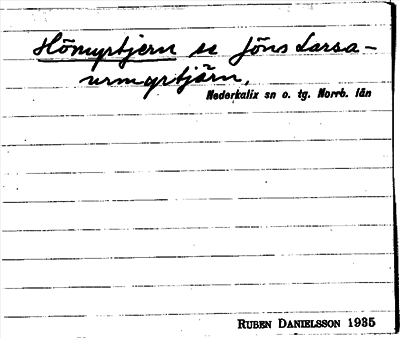 Hömyrtjern se Jöns Larsa-
urmyrtjärn.
Nederkalix sn o. tg. Norrb. län
RUBEN DANIELSSON 1935